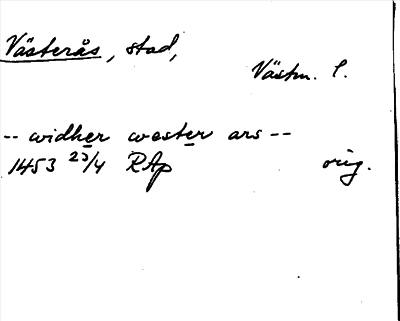 Västerås, stad,
Västm. l.
-- widher wester ars --
1453 23/4 RAp orig.